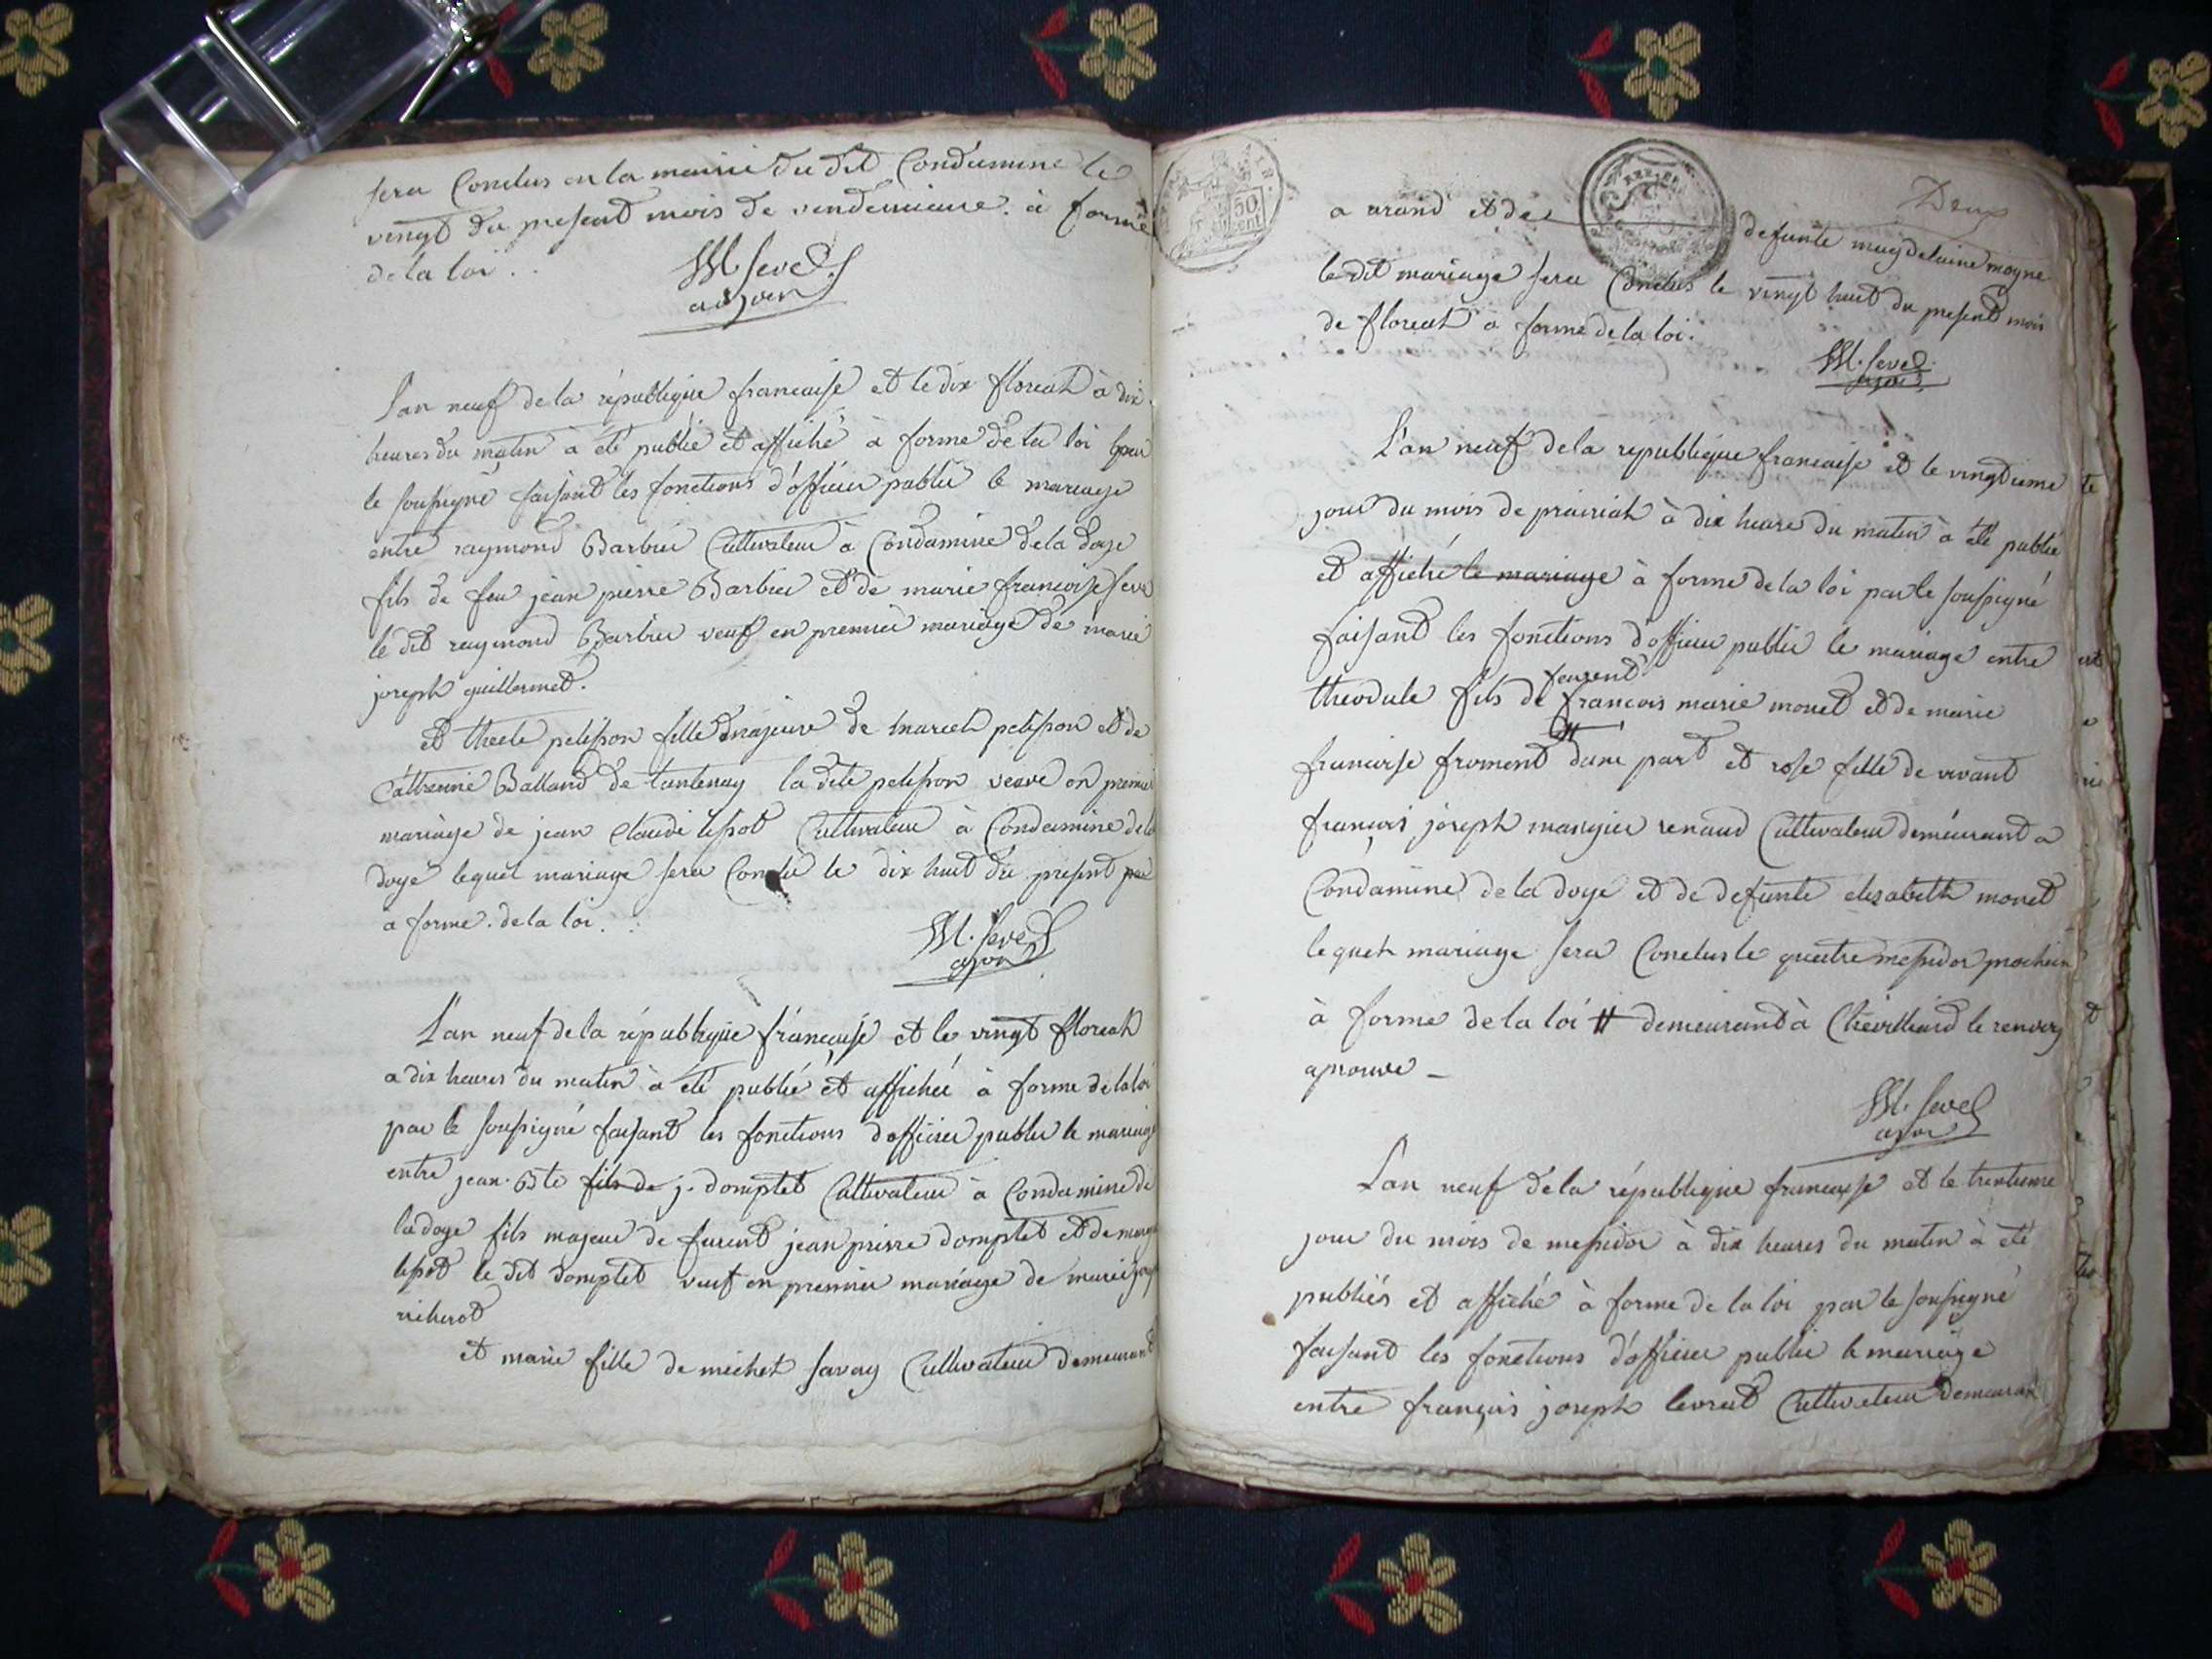 sera Conclus en la mairie du dit Condamine le
vingt du present mois de vendemiaire. à forme
de la loi..
M. Seve
adjoin
L'an neuf de la république francaise et le dix floreal à dix
heures du matin à été publié et affiché à forme de la loi par
le soussigné faisant les fonctions d'officier public le mariage
entre raymond Barbier Cultivateur à Condamine de la doye
fils de feu jean pierre Barbier et de marie francoise seve
le dit raymond Barbier veuf en premier mariage de marie
joseph guillermet.
et thecle pelisson fille majeure de marcel pelisson et de
Catherine Balland de lantenay la dite pelisson veuve en premier
mariage de jean claude lepot Cultivateur à Condamine de la
doye lequel mariage sera le dix huit du present
a forme. de la loi.
M. Seve
ajoin
L'an neuf de la république francaise et le vingt floreal
a dix heures du matin à été publié et affiché à forme de la loi
par le soussigné faisant les fonctions d'officier public le mariage
entre jean. Bte fils de j. domptet Cultivateur à Condamine de
la doye fils majeur de furent jean pierre domptet et de
lepot le dit domptet veuf en premier mariage de marie
richerot
et marie fille de michel savay Cultivateur demeurant
50
cent
REP.
Deux
a arand et de defunte magdelaine moyne
le dit mariage sera Conclus le vingt huit du present mois
de floreal a forme de la loi.
M. Seve
ajoin
L'an neuf de la republique francaise et le vingtieme
jour du mois de prairial à dix heure du matin à été publié
et affiché le mariage à forme de la loi par le soussigné
faisant les fonctions d'officier public le mariage entre
furent
theodule fils de francois marie monet et de marie
francoise froment # dune part et rose fille de vivant
françois joseph mangier renaud Cultivateur demeurant a
Condamine de la doye et de defunte elizabeth monet
lequel mariage sera Conclus le quatre messidor prochain
à forme de la loi # demeurant à Chevilliard le renvoy
aprouve -
M. Seve
ajoin
L'an neuf de la république francaise et le trentieme
jour du mois de messidor à dix heures du matin à été
publiés et affiché à forme de la loi par le soussigné
faisant les fonctions d'officier public le mariage
entre françois joseph levrat Cultivateur demeurant